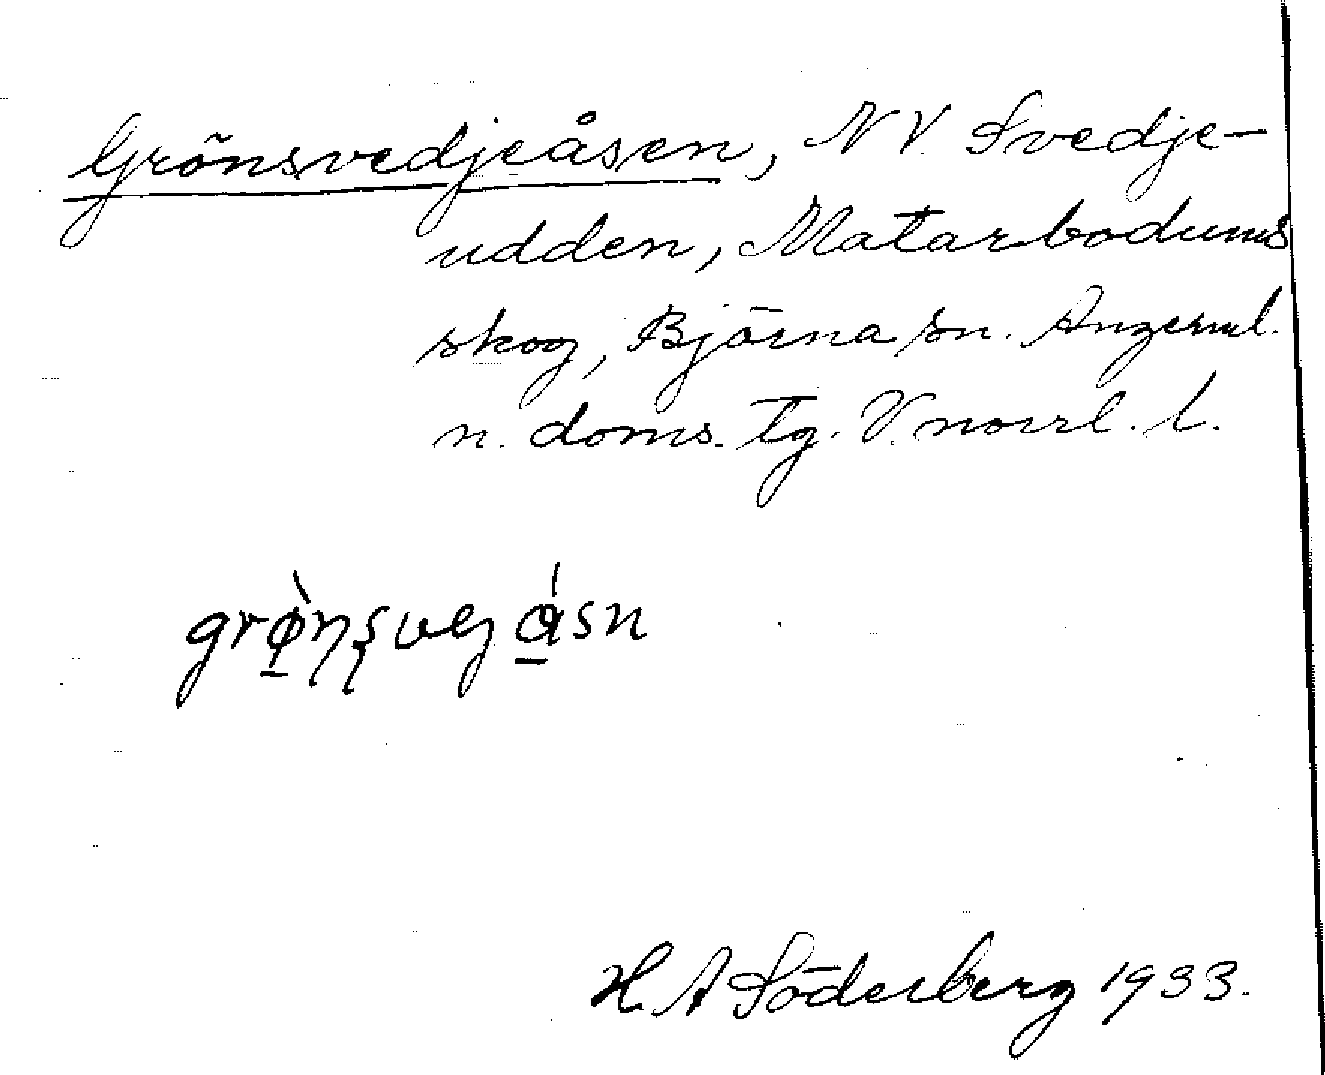 Grönsvedjeåsen, NV. Svedje-
udden, Matarbodums
skog, Björna sn. Ångerml.
n. doms. tg. V. norrl. l.
H. A Söderberg 1933.